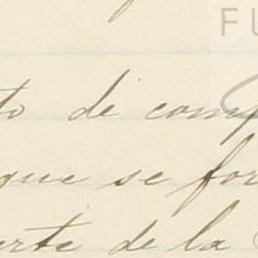 FU
to de comp
que se for
erte de la